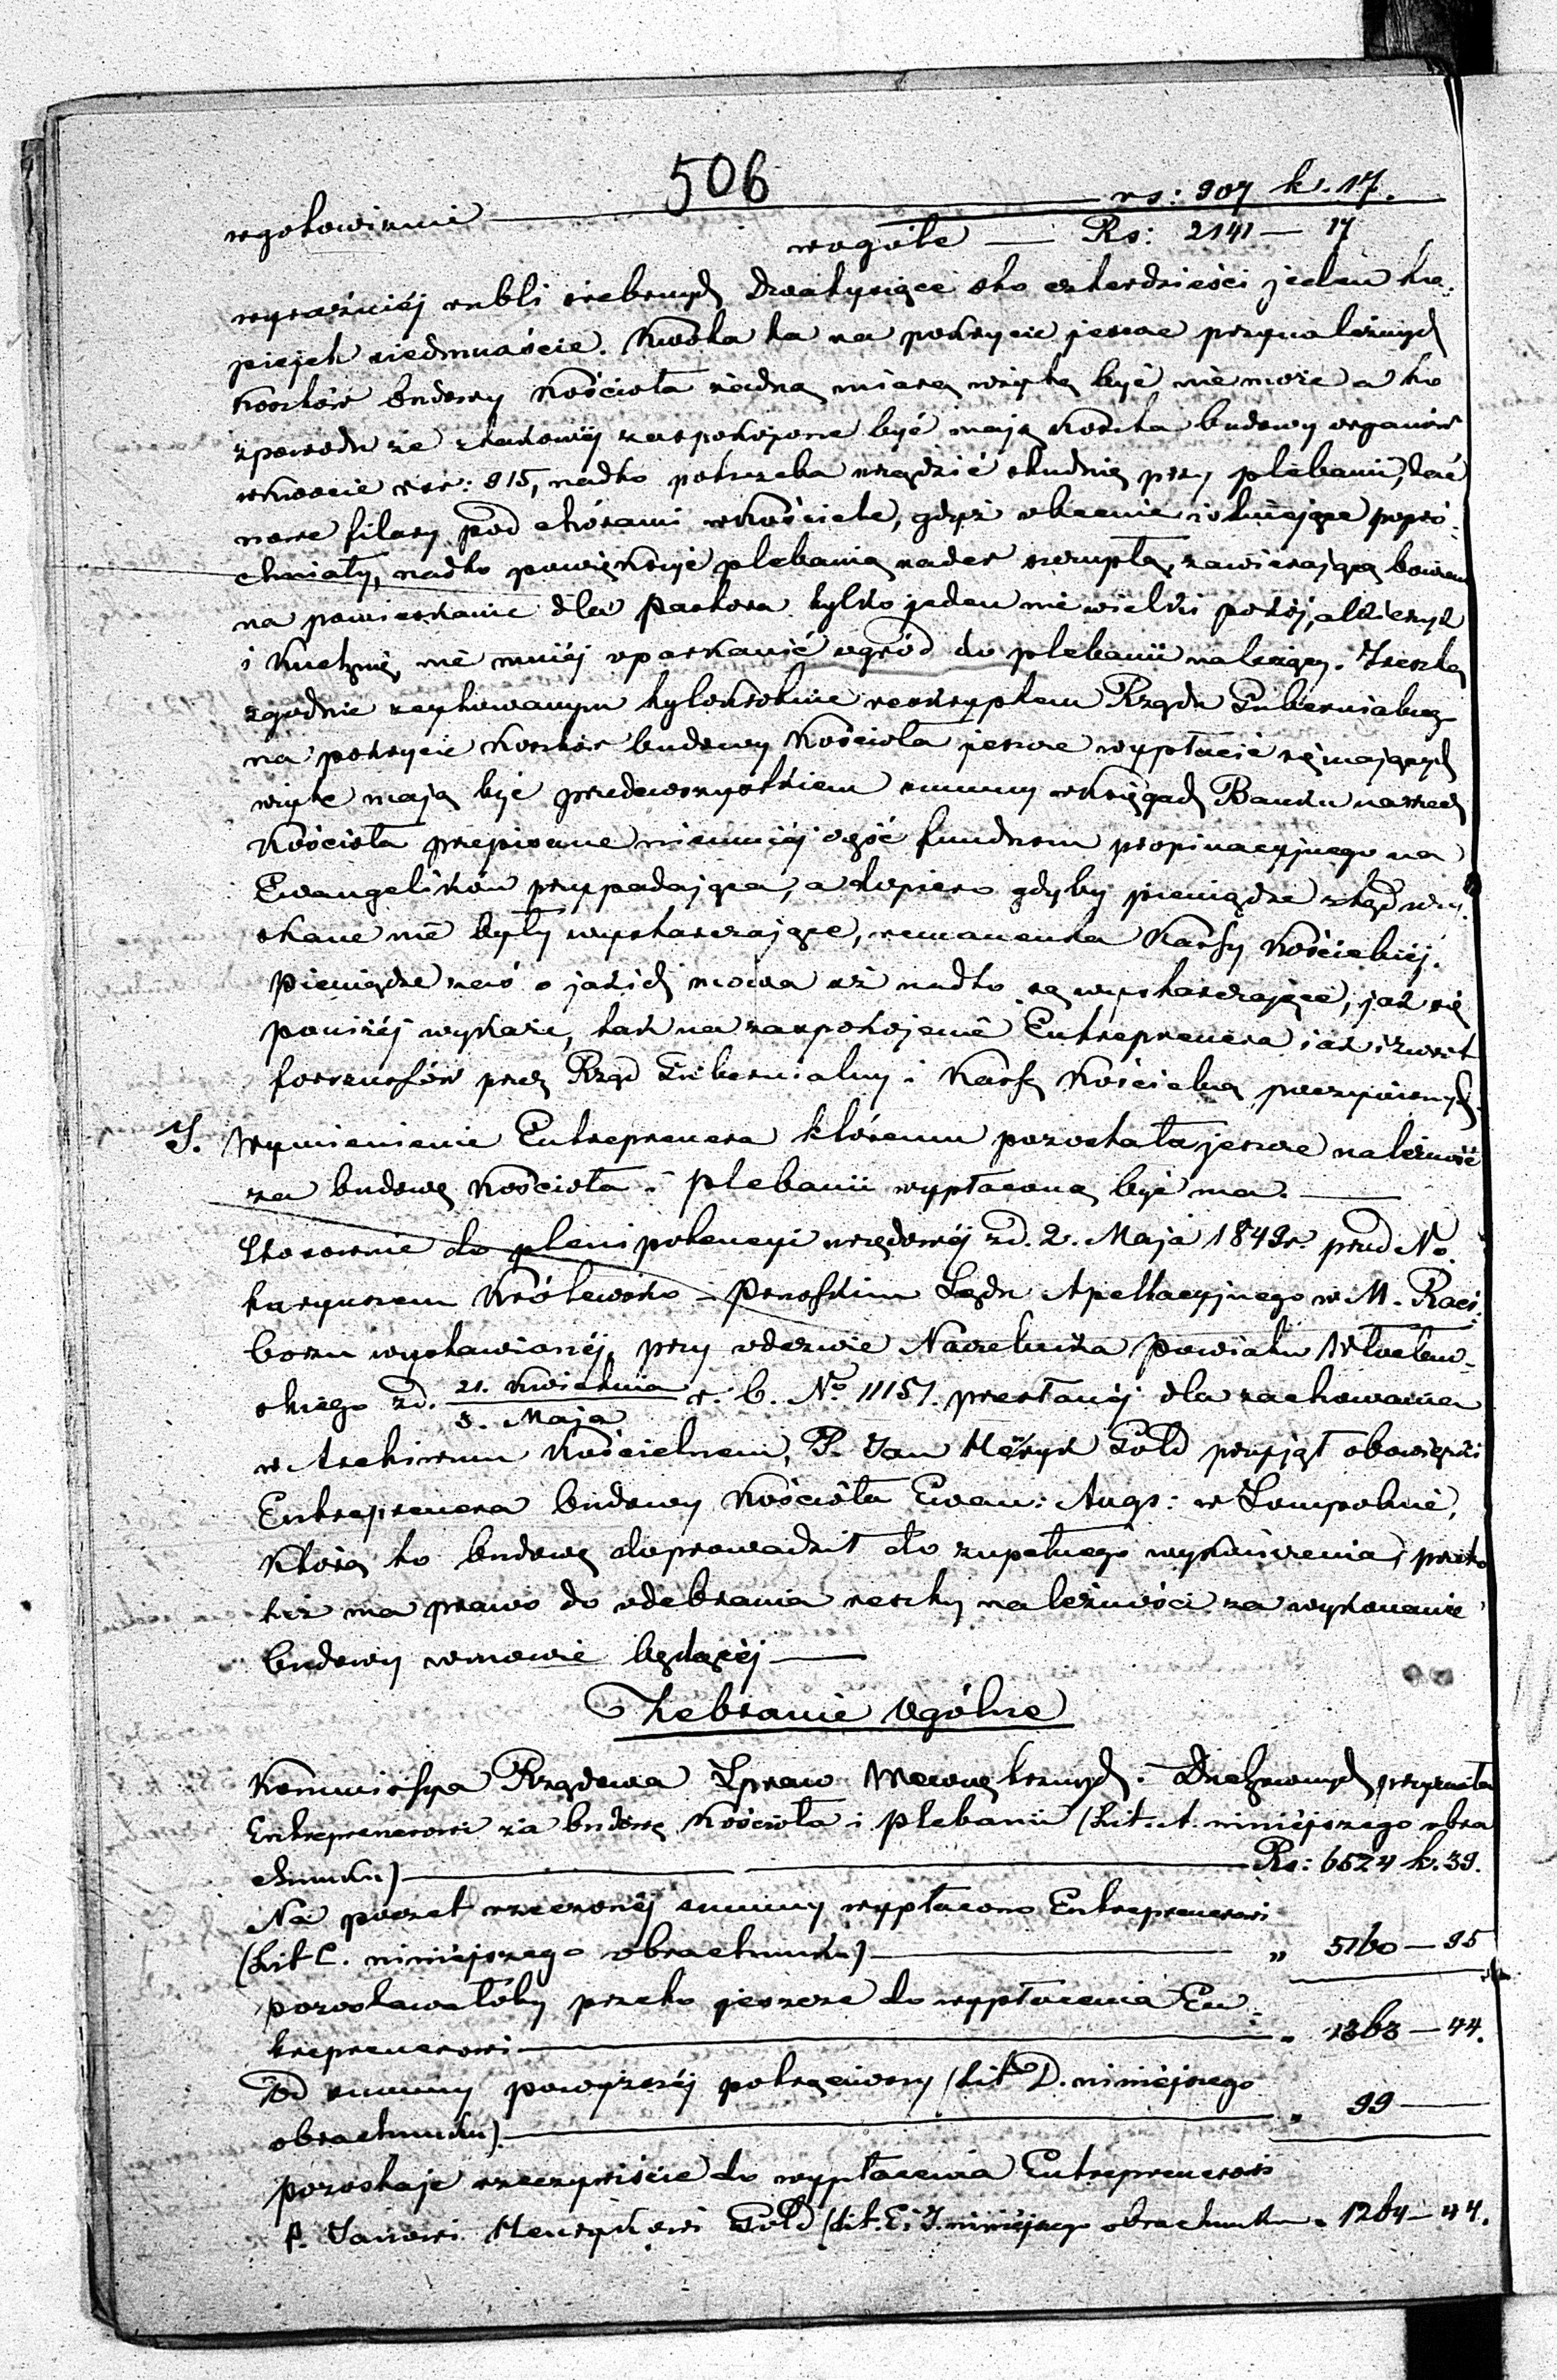 506
wgotowiznie — rs: 907 k. 17.
wogóle — Rs: 2141 — 17
wyraźniéj rubli srebrnych dwatysiące sto czterdzieści jeden ko-
piejek siedmnaście. Kwota ta na pokrycie jeszcze przynależnych
kosztów budowy Kościoła żadną miarą użytą być nie może a to
zpowodu że ztakowéj zaspokojone być mają koszta budowy organów
wkwocie rsr: 915, nadto potrzeba urządzić studnię przy plebanii, dać
nowe filary pod chórami wkościele, gdyż obecnie istniejące popró-
chniały, nadto powiększyć plebanią nader szczupłą, zawierającą bowiem
na pomieszkanie dla Pastora tylko jeden nie wielki pokój, alkierzyk
i kuchnię, nie mniéj oparkanić ogród do plebanii należący. Zresztą
zgodnie zcytowanym tylokrotnie reskryptem Rządu Gubernialnego
na pokrycie kosztów budowy Kościoła jeszcze wypłacić się mających
użyte mają być przedewszystkiem summy wksięgach Banku narzecz
Kościoła przepisane niemniéj część funduszu propinacyjnego na
Ewangelików przypadająca, a dopiero gdyby pieniądze ztąd uzy-
skane nie były wystarczające, remanenta Kassy Kościelnéj.
Pieniądze zaś o jakich mowa aż nadto są wystarczające, jak się
poniżéj wykaże, tak na zaspokojenie Entreprenera jak i zwrot
forszusów przez Rząd Gubernialny i Kassę Kościelną poczynionych.
J. Wymienienie Entreprenera któremu pozostała jeszcze należność
za budowę Kościoła i plebanii wypłaconą być ma. —
Stosownie do plenipotencyi urzędowéj zd. 2. Maja 1849r. przed No-
taryuszem Królewsko - Pruskim Sądu Apellacyjnego w M. Raci-
borzu wystawionéj, przy odezwie Naczelnika Powiatu Włocław-
skiego zd. 21. Kwietnia / 3. Maja r. b. No 11151. przesłanéj dla zachowania
w Archiwum Kościelnem, P. Jan Henryk Gold przyjął obowiązki
Entreprenera budowy Kościoła Ewan: Augs: w Sompolnie,
którą to budowę doprowadził do zupełnego wykończenia, przeto
też ma prawo do odebrania reszty należności za wykonanie
budowy wmowie będącéj —
Zebranie Ogólne
Kommissya Rządowa Spraw Wewnętrznych i Duchownych przyznała
Entreprenerowi za budowę Kościoła i plebanii (Lit. A. niniejszego obra
chunku) — Rs: 6524 k. 39.
Na poczet rzeczonéj summy wypłacono Entreprenerowi
(Lit C. niniejszego obrachunku) — „ 5160 — 95
pozostawałoby przeto jeszcze do wypłacenia En-
treprenerowi — „ 1363 — 44.
Od summy powyższéj potrąciwszy (Lit D. niniejszego
obrachunku). — „ 99 —
pozostaje rzeczywiście do wypłacenia Entreprenerowi
P. Janowi Henrykowi Gold (Lit. E. i J. niniejszego obrachunku „ 1264 — 44.